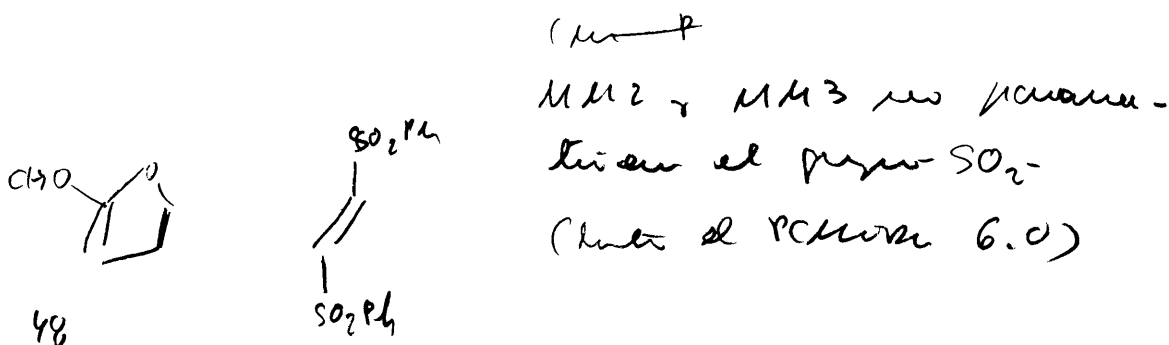 MM2 y MM3 no parame-
trizan el grupo SO₂-
(hasta el PCMODEL 6.0)
SO₂Ph
CH₃O
O
SO₂Ph
48